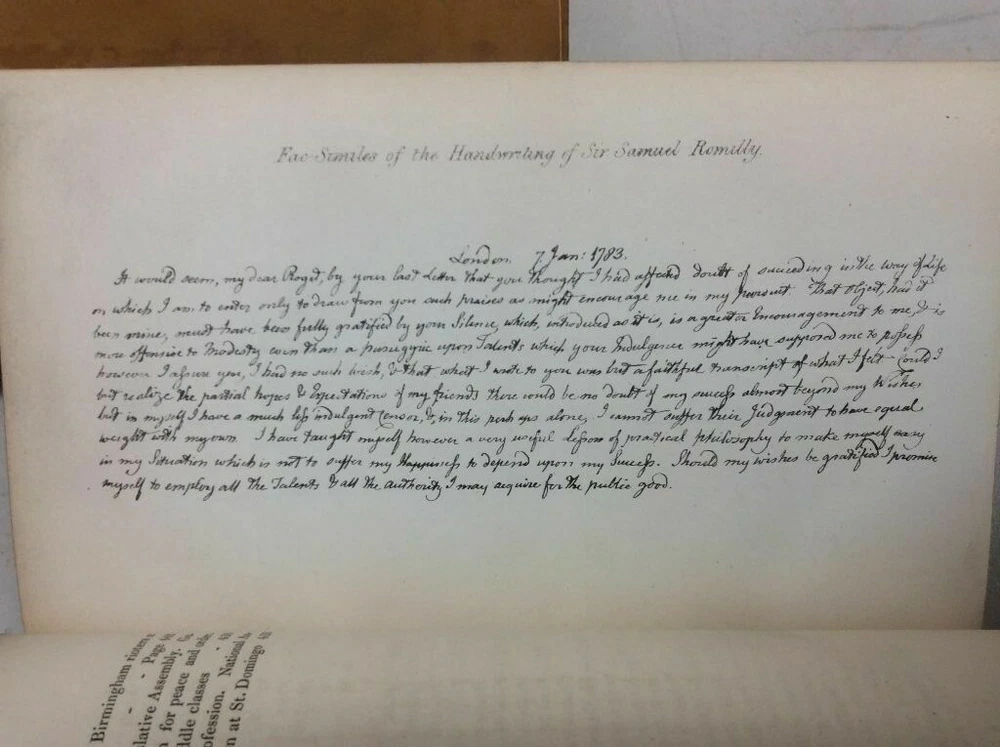 Fac-Similes of the Handwriting of Sir Samuel Romilly.
London 7 Jan: 1783.
It would seem, my dear Roget, by your last Letter that you thought I had affected doubt of succeeding in the way of Life
on which I am to enter only to draw from you such praises as might encourage me in my pursuit. That object, had it
been mine, must have been fully gratified by your Silence, which, introduced as it is, is a greater Encouragement to me, & is
more offensive to Modesty even than a panegyric upon Talents which your Indulgence might have supposed me to possess
however I assure you, I had no such wish, & that what I wrote to you was but a faithful transcript of what I felt - Could I
but realize the partial hopes & Expectations of my friends there would be no doubt of my success almost beyond my Wishes
but in myself I have a much less indulgent Censor, & in this perhaps alone, I cannot suffer their Judgment to have equal
weight with my own. I have taught myself however a very useful Lesson of practical philosophy to make myself easy
in my Situation which is not to suffer my Happiness to depend upon my Success. Should my wishes be gratified I promise
myself to employ all the Talents & all the authority I may acquire for the public good.
Birmingham rioters
- - Page
lative Assembly.
for peace and
ddle classes -
ofession. National
n at St. Domingo